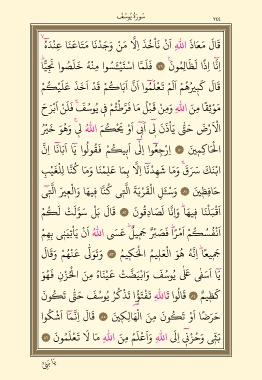 ٢٤٤ سُورَةُ يُوسُفَ
قَالَ مَعَاذَ اللهِ اَنْ نَأْخُذَ اِلَّا مَنْ وَجَدْنَا مَتَاعَنَا عِنْدَهُٓ
اِنَّٓا اِذًا لَظَالِمُونَ ﴿٧٩﴾ فَلَمَّا اسْتَيْـَٔسُوا مِنْهُ خَلَصُوا نَجِيًّاۜ
قَالَ كَبِيرُهُمْ اَلَمْ تَعْلَمُٓوا اَنَّ اَبَاكُمْ قَدْ اَخَذَ عَلَيْكُمْ
مَوْثِقًا مِنَ اللهِ وَمِنْ قَبْلُ مَا فَرَّطْتُمْ فِي يُوسُفَۚ فَلَنْ اَبْرَحَ
الْاَرْضَ حَتّٰى يَأْذَنَ لِٓي اَبِٓي اَوْ يَحْكُمَ اللهُ لِيۚ وَهُوَ خَيْرُ
الْحَاكِمِينَ ﴿٨٠﴾ اِرْجِعُٓوا اِلٰٓى اَبِيكُمْ فَقُولُوا يَٓا اَبَانَٓا اِنَّ
ابْنَكَ سَرَقَۚ وَمَا شَهِدْنَٓا اِلَّا بِمَا عَلِمْنَا وَمَا كُنَّا لِلْغَيْبِ
حَافِظِينَ ﴿٨١﴾ وَسْـَٔلِ الْقَرْيَةَ الَّتِي كُنَّا فِيهَا وَالْعِيرَ الَّتِٓي
اَقْبَلْنَا فِيهَاۜ وَاِنَّا لَصَادِقُونَ ﴿٨٢﴾ قَالَ بَلْ سَوَّلَتْ لَكُمْ
اَنْفُسُكُمْ اَمْرًاۜ فَصَبْرٌ جَمِيلٌۜ عَسَى اللهُ اَنْ يَأْتِيَنِي بِهِمْ
جَمِيعًاۜ اِنَّهُ هُوَ الْعَلِيمُ الْحَكِيمُ ﴿٨٣﴾ وَتَوَلّٰى عَنْهُمْ وَقَالَ
يَٓا اَسَفٰى عَلٰى يُوسُفَ وَابْيَضَّتْ عَيْنَاهُ مِنَ الْحُزْنِ فَهُوَ
كَظِيمٌ ﴿٨٤﴾ قَالُوا تَاللهِ تَفْتَؤُا تَذْكُرُ يُوسُفَ حَتّٰى تَكُونَ
حَرَضًا اَوْ تَكُونَ مِنَ الْهَالِكِينَ ﴿٨٥﴾ قَالَ اِنَّمَٓا اَشْكُوا
بَثِّي وَحُزْنِٓي اِلَى اللهِ وَاَعْلَمُ مِنَ اللهِ مَا لَا تَعْلَمُونَ ﴿٨٦﴾
يَا بَنِيَّ